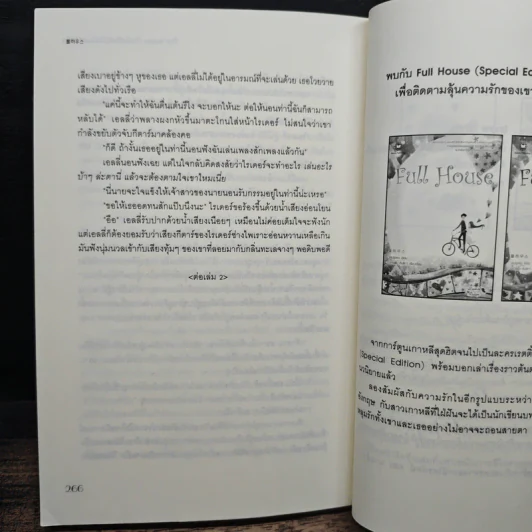 풀하우스
เสียงเบาอยู่ข้างๆ หูของเธอ แต่เอลลี่ไม่ได้อยู่ในอารมณ์ที่จะเล่นด้วย เธอโวยวาย
เสียงดังไปทั่วเรือ
"แค่นี้จะทำให้ฉันตื่นเต้นรึไง จะบอกให้นะ ต่อให้นอนท่านี้ฉันก็สามารถ
หลับได้" เอลลี่ว่าพลางผงกหัวขึ้นมาตะโกนใส่หน้าไรเดอร์ ไม่สนใจว่าเขา
กำลังขยับตัวจับกีตาร์มาคล้องคอ
"ก็ดี ถ้างั้นเธออยู่ในท่านี้นอนฟังฉันเล่นเพลงสักเพลงแล้วกัน"
เอลลี่นอนฟังเฉย แต่ในใจกลับคิดสงสัยว่าไรเดอร์จะทำอะไร เล่นอะไร
บ้าๆ ล่ะตานี่ แล้วจะต้องตามใจเขาไหมเนี่ย
"นี่นายจะใจแข็งให้เจ้าสาวของนายนอนรับกรรมอยู่ในท่านี้น่ะเหรอ"
"ขอให้เธออดทนสักแป๊บนึงนะ" ไรเดอร์ขอร้องขึ้นด้วยน้ำเสียงอ่อนโยน
"อือ" เอลลี่รับปากด้วยน้ำเสียงเนือยๆ เหมือนไม่ค่อยเต็มใจจะฟังนัก
แต่เอลลี่ก็ต้องยอมรับว่าเสียงกีตาร์ของไรเดอร์ช่างไพเราะอ่อนหวานเหลือเกิน
มันฟังนุ่มนวลเข้ากับเสียงทุ้มๆ ของเขาที่ลอยมากับกลิ่นทะเลจางๆ พอดิบพอดี
<ต่อเล่ม 2>
266
พบกับ Full House (Special E
เพื่อติดตามลุ้นความรักของเขา
Full House
F
จากการ์ตูนเกาหลีสุดฮิตจนไปเป็นละครเรตติ้
(Special Edition) พร้อมบอกเล่าเรื่องราวต้นต
นวนิยายแล้ว
ลองสัมผัสกับความรักในอีกรูปแบบระหว่า
อังกฤษ กับสาวเกาหลีที่ใฝ่ฝันจะได้เป็นนักเขียนบท
หลุมรักทั้งเขาและเธออย่างไม่อาจจะถอนสายตา